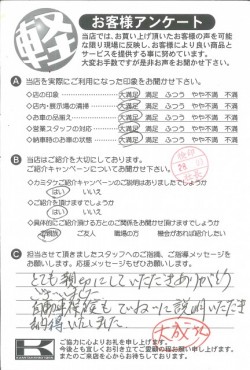 軽
お客様アンケート
当店では、お買い上げ頂いたお客様の声を可能
な限り現場に反映し、お客様により良い商品と
サービスを提供する事に努めています。
大変お手数ですが是非お声をお聞かせ下さい。
A 当店を実際にご利用になった印象をお聞かせ下さい。
○店の印象 大満足 満足 ふつう やや不満 不満
○店内・展示場の清掃 大満足 満足 ふつう やや不満 不満
○お車の品揃え 大満足 満足 ふつう やや不満 不満
○営業スタッフの対応 大満足 満足 ふつう やや不満 不満
○納車時のお車の状態 大満足 満足 ふつう やや不満 不満
B 当店はご紹介を大切にしております。
ご紹介キャンペーンについてお聞かせ下さい。
○カミタケご紹介キャンペーンのご説明はありましたでしょうか
はい いいえ
○ご紹介を頂けますでしょうか
はい いいえ
○具体的にご紹介頂ける方との間柄をお聞かせ頂けますでしょうか
ご友人 職場の方 機会があれば紹介したい
C 担当させて頂きましたスタッフへのご指摘、ご指導メッセージを
お願いします。応援メッセージもぜひお願いします。
とても親切にしていただきありがとう
ございました
自動車保険もていねいに説明いただき
納得いたしました
K
ご協力に心よりお礼を申し上げます。
今後とも宜しくお引き立てご愛顧の程お願い申し上げます。
またのご来店を心からお待ちしております。